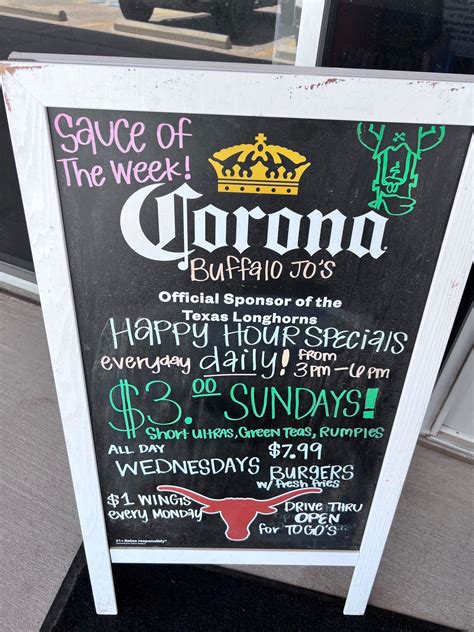 Sauce of
The Week!
Corona
Buffalo Jo's
Official Sponsor of the
Texas Longhorns
Happy Hour Specials
everyday daily! from
3pm-6pm
$3.00 SUNDAYS!
Short ultras, Green Teas, Rumples
ALL DAY $7.99
WEDNESDAYS BURGERS
w/ fresh fries
$1 WINGS
every MONDAY
DRIVE THRU
OPEN
for TO GO'S
21+ Relax responsibly®